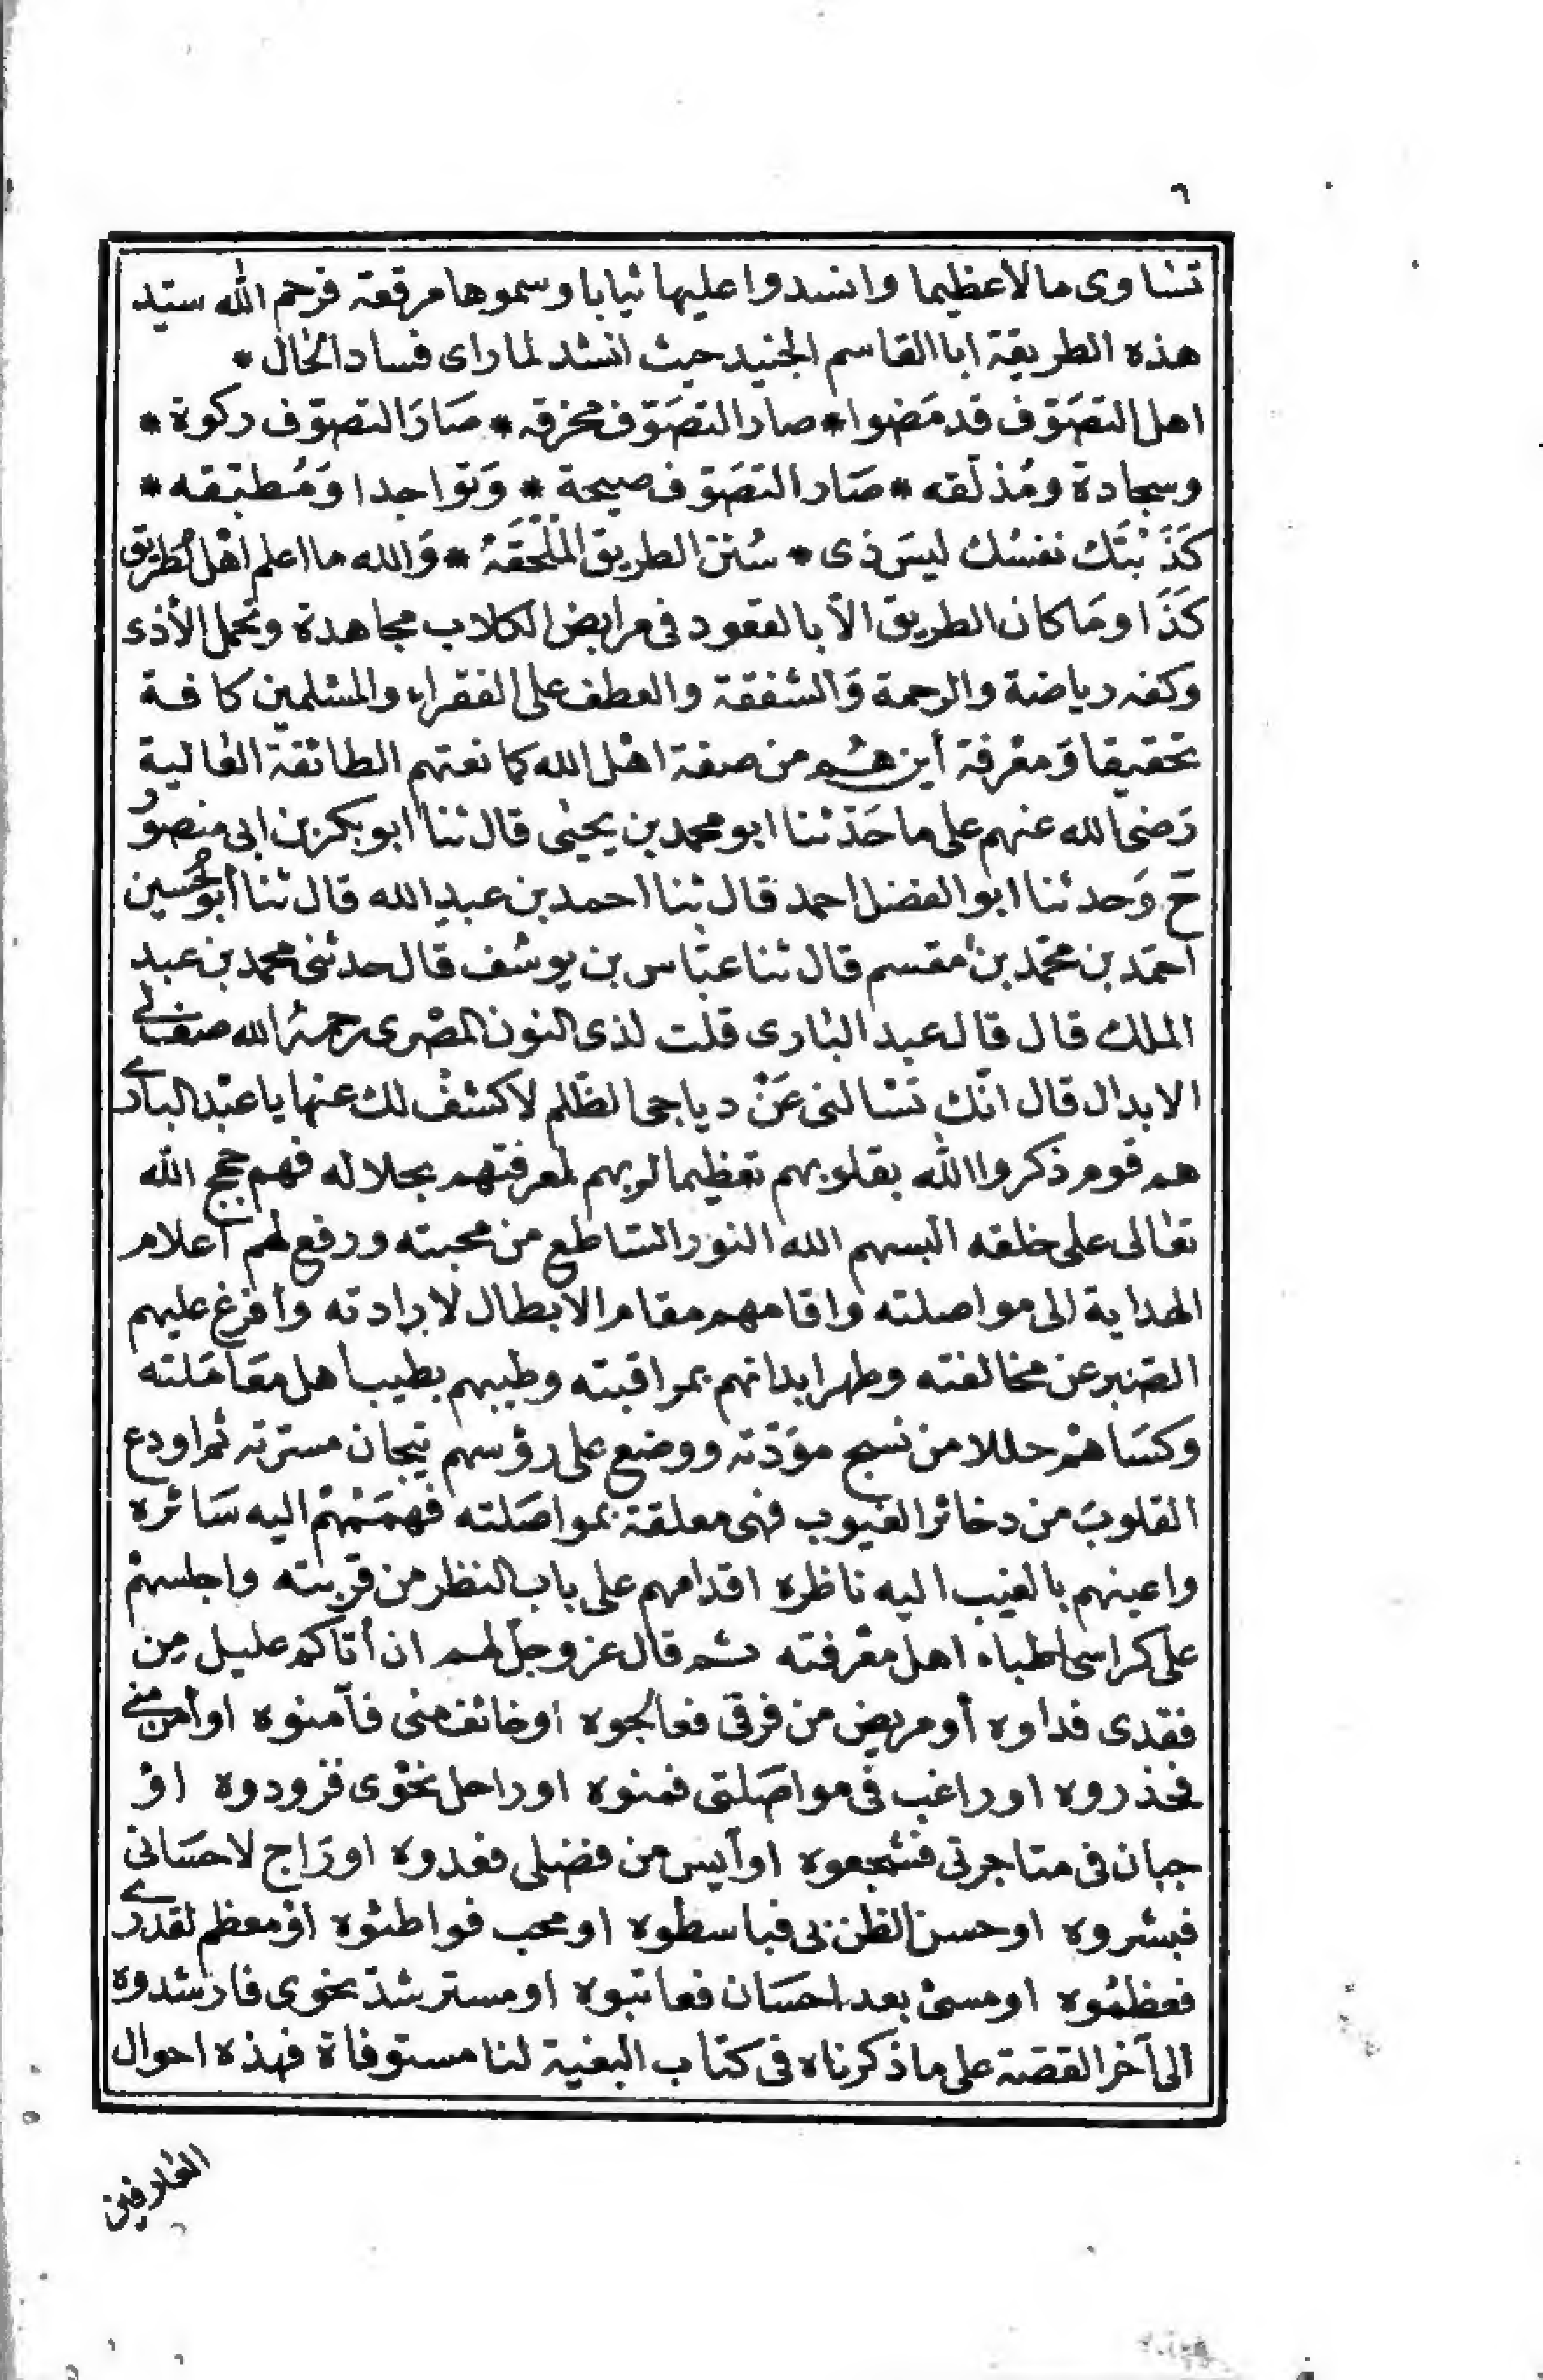 ٦
تساوى مالا عظيما وانسدوا عليها ثيابا وسموها مرقعة فرحم الله سيّد
هذه الطريقة ابا القاسم الجنيد حيث انشد لما راى فساد الحال *
اهل التصَوّف قد مَضوا * صار التصَوّف مخرقه * صَارَ التصوّف ركوة *
وسجادة ومُذلّقه * صَار التصَوّف صيحة * وَتواجدا وَمُطبّقه *
كَذَبْتَك نفسُك ليسَ ذى * سُنن الطريق المُلْحَقَهْ * وَالله ما اعلم اهْل طريق
كَذَا وَمَا كان الطريق الاّ بالقعود فى مرابض الكلاب مجاهدة وتحمل الأذى
وكفه رياضة والرحمة وَالشفقة والعطف على الفقراء والمسْلمين كافة
تحقيقا وَمعْرفة أين هُم من صفة اهْل الله كما نعتهم الطائفة العَالية
رَضى الله عنهم على ما حَدّثنا ابو محمد بن يحيَى قال ثنا ابو بكر بن ابى منصوُر
حَ وَحدثنا ابو الفضل احمد قال ثنا احمد بن عبدِ الله قال ثنا أبو الحُسين
احمَد بن محمّد بن مقسم قال ثنا عبّاس بن يوسُف قال حدثنى محمد بن عبد
الملك قال قال عبد البَارى قلت لذى النون المصْرى رحمهُ الله صف لى
الابدال قال انّك تسْالنى عَنْ دياجى الظّلم لاكشفْ لك عنها يا عبْد البارى
هم قوم ذكروا الله بقلوبهم تعظيما لربهم لمعرفتهم بجلاله فهم حجج الله
تعَالى على خلقه البسهم الله النور السّاطع من محبته ورفع لهم أعلام
الهداية الى مواصلته واقامهم مقام الابطال لارادته وأفرغ عليهم
الصّبر عن مخالفته وطهر ابدانهم بمراقبته وطيبهم بطيب أهل معَامَلته
وكسَاهمْ حللا من نسج موَدّته ووضع على رؤسهم تيجان مسرته ثم اودع
القلوبَ من دخائر الغيوب فهى معلقة بمواصَلته فهمَمْهُمْ اليه سَائره
واعينهم بالغيب اليه ناظره اقدامهم على باب النظر من قربته واجلسهمْ
على كراسى اطباء اهل معْرفته ثم قال عز وجلّ لهم ان أتاكم عليل مِن
فقدى فداوه أو مريض من فرقى فعالجوه اوخائف منى فآمنوه اوأمن منى
فحذروه اوراغب فى مواصَلتى فمنوه اوراحل نحْوى فزودوه اوْ
جبان فى متاجرتى فشجعوه اوآيس من فضلى فعدوه اورَاج لاحسَانى
فبشروه اوحسن الظن بى فباسطوه اومحب فواطئوه اوْمعظم لقدرى
فعظمُوه اومسئ بعد احسَان فعاتبوه اومسترشد نحوى فارشدوه
الى آخر القصّة على ما ذكرناه فى كتاب البغية لنا مستوفاة فهذه احوال
العَارفين